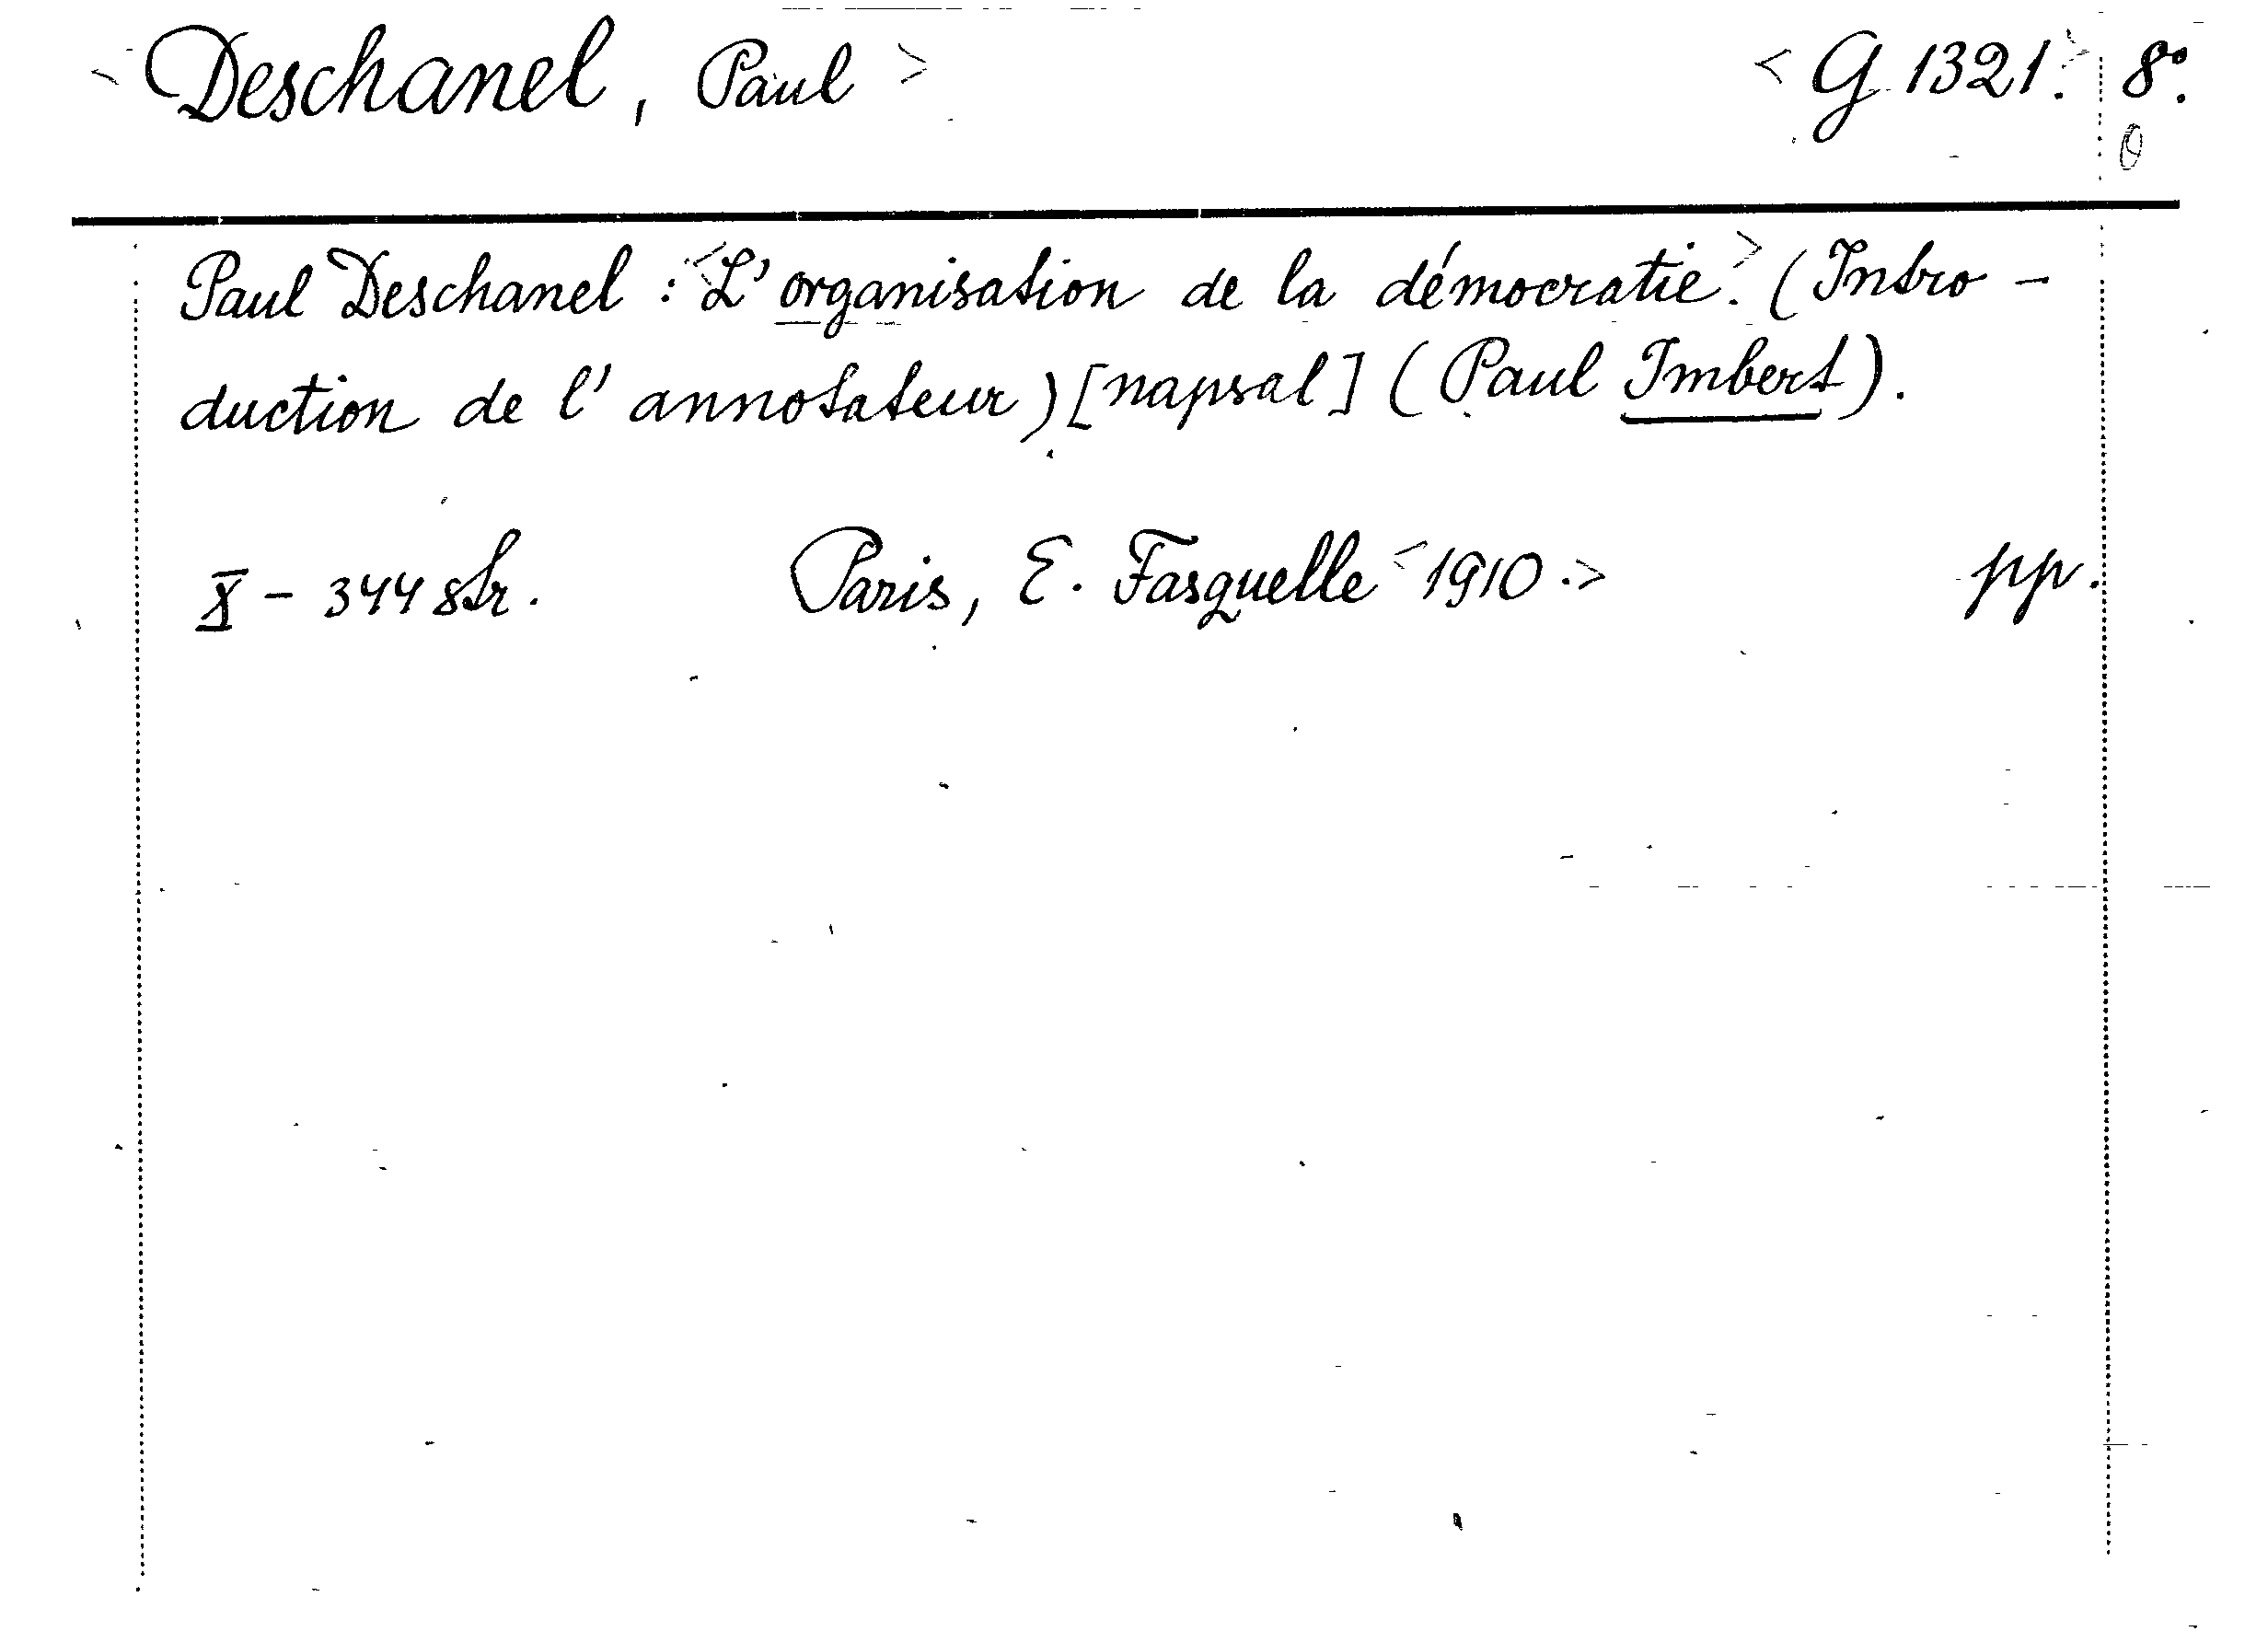 <Deschanel, Paul> <G 1321.> 8°.
Paul Deschanel: <L'organisation de la démocratie.> (Intro-
duction de l'annotateur) [napsal] (Paul Imbert).
X - 344 str. Paris, E. Fasquelle <1910.> pp.